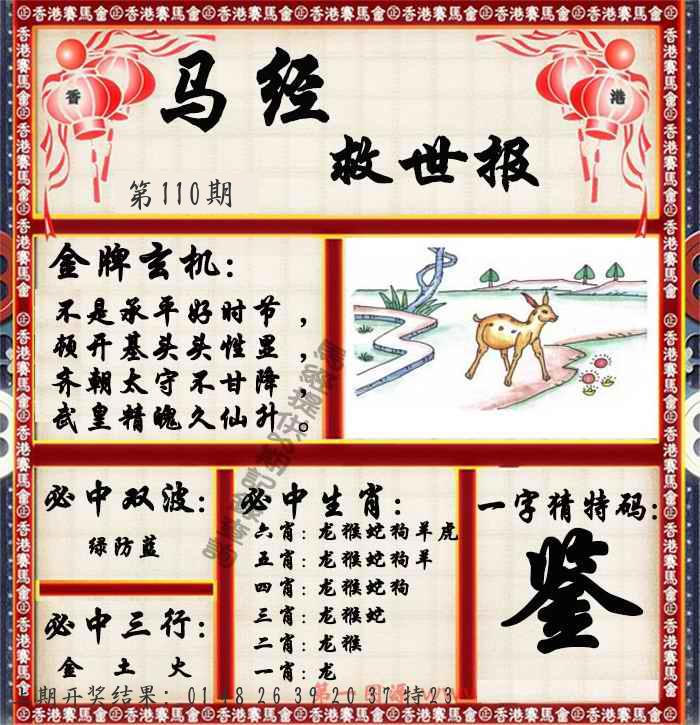 香港賽馬會㊣香港賽馬會㊣香港賽馬會㊣香港賽馬會㊣香港賽馬會㊣香港賽馬會
香
港
马经
救世报
第110期
金牌玄机：
不是承平好时节，
顿开基头头性显，
齐朝太守不甘降，
武皇精魄久仙升。
必中双波：
绿防蓝
必中三行：
金 土 火
必中生肖：
六肖：龙猴蛇狗羊虎
五肖：龙猴蛇狗羊
四肖：龙猴蛇狗
三肖：龙猴蛇
二肖：龙猴
一肖：龙
一字猜特码：
鉴
期开奖结果：01 18 26 39 20 37 特23
第一图源